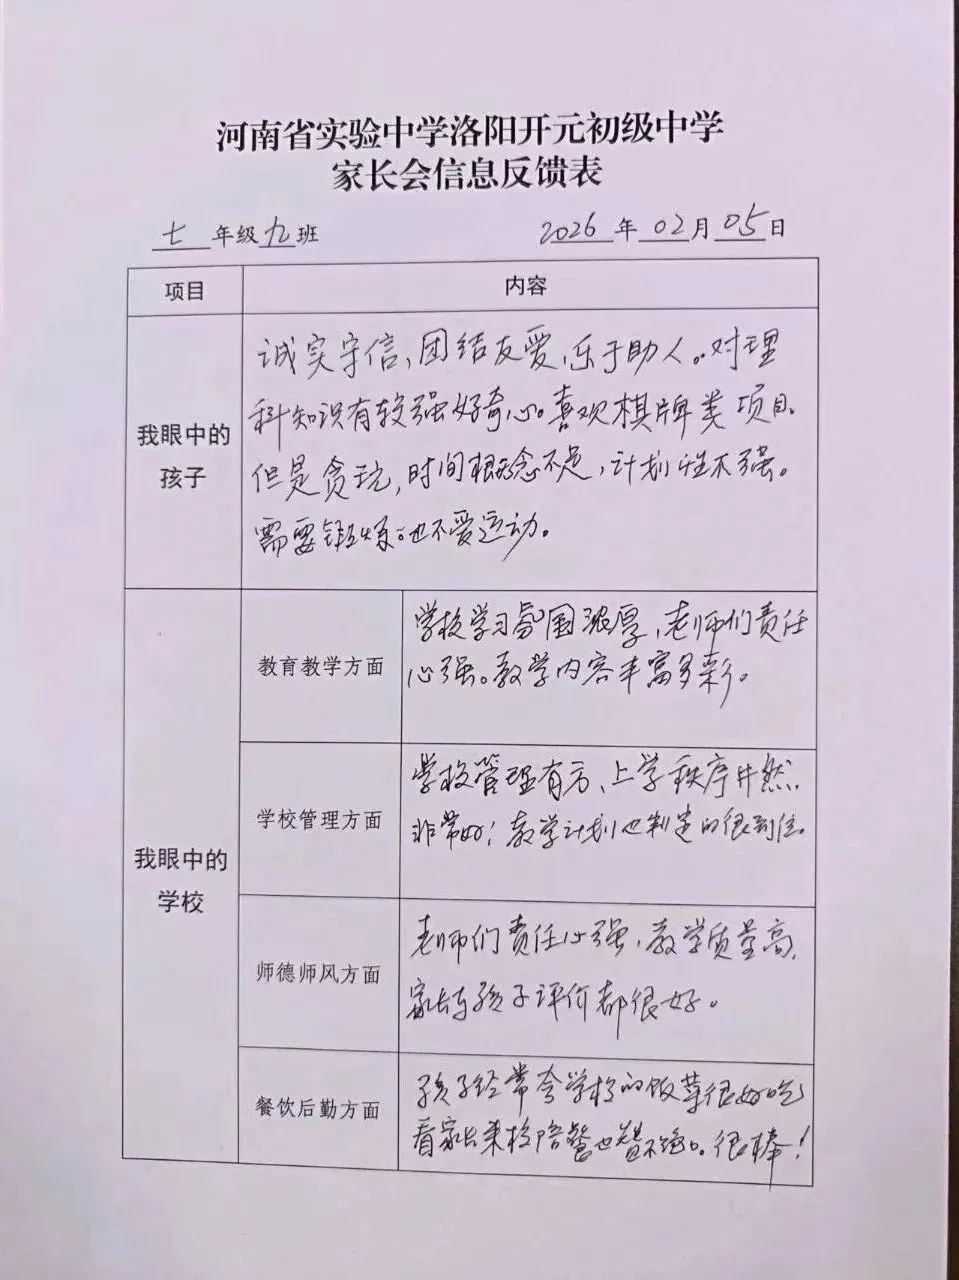 河南省实验中学洛阳开元初级中学
家长会信息反馈表
七年级九班 2026年02月05日
项目 内容
我眼中的
孩子
诚实守信、团结友爱、乐于助人。对理
科知识有较强好奇心。喜欢棋牌类项目、
但是贪玩,时间概念不足,计划性不强。
需要锻炼。也不爱运动。
我眼中的
学校
教育教学方面
学校学习氛围浓厚,老师们责任
心强。教学内容丰富多彩。
学校管理方面
学校管理有方、上学秩序井然
非常好!教学计划也制定的很到位。
师德师风方面
老师们责任心强,教学质量高,
家长与孩子评价都很好。
餐饮后勤方面
孩子经常夸学校的饭菜很好吃
看家长来校陪餐也赞不绝口。很棒!